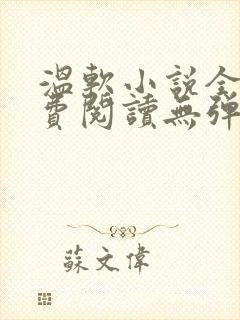 溫軟小說全
費閱讀無彈
蘇文偉